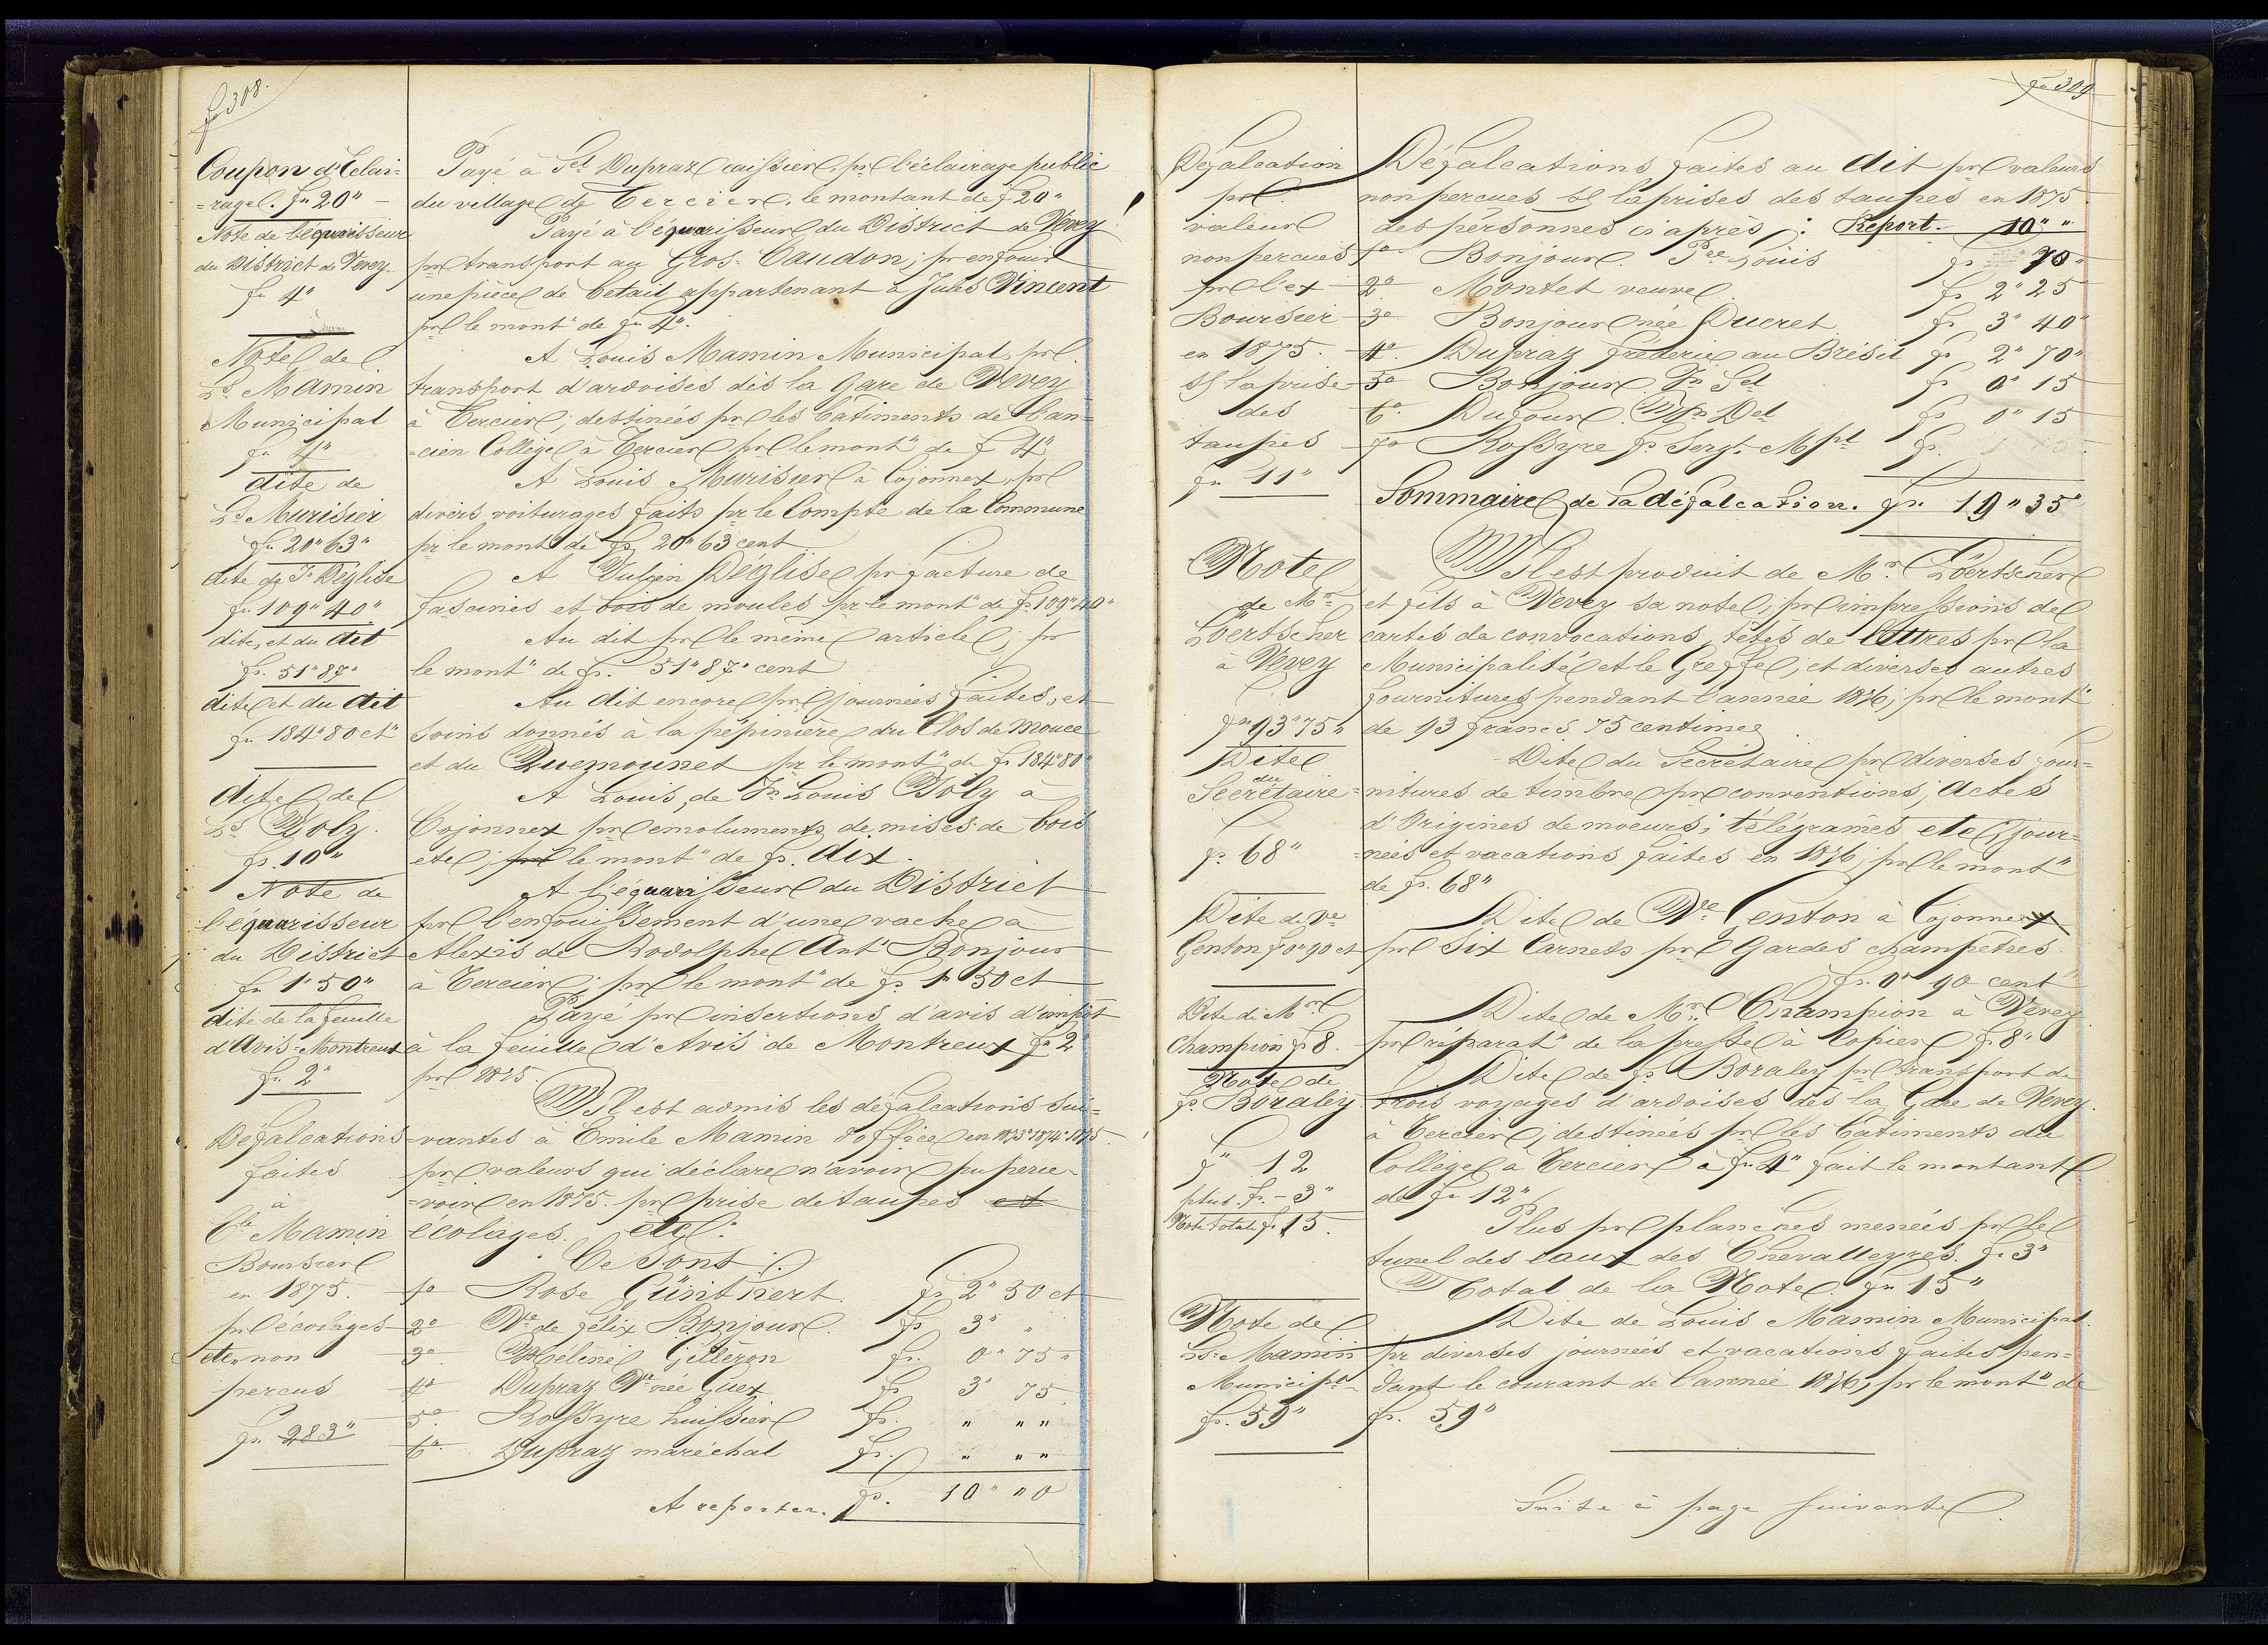 fo 308.
Coupon d'Eclai=
=rage. fr 20"
Note de l'équarisseur
du District de Vevey
fr 4"
Note de
Ls Mamin
Municipal
fr 4"
dite de
Ls Murisier
fr 20" 63"
dite de Vn Déglise
fr 109" 40"
dite, et du dit
fr. 51" 87"
dite et du dit
fr 184" 80 ct"
dite de
Ls Boly.
fr. 10"
Note de
l'equarisseur
du District
fr 1" 50"
dite de la feuille
d'Avis-Montreux
fr 2"
Défalcations
faites
à
Ele Mamin
Boursier
en 1875.
pr écolages
etc" non
percus
Payé à Sel Dupraz caissier, pr l'éclairage public
du village de Tercier, le montant de f 20"
Payé à l'équarisseur du District de Vevey
pr transport au Gros-Caudon, pr enfouir
une pièce de betail appartenant à Jules Vincent
pr le mont" de fr 4".
A Louis Mamin Municipal, pr
transport d'ardoises dès la Gare de Vevey
à Tercier, destinées pr les bâtiments de l'an=
=cien Collège à Tercier pr le mont" de f 4"
A Louis Murisier à Cojonnex, pr
divers voiturages faits pr le Compte de la Commune
pr le mont" de fr 20" 63 cent
A Vulgin Déglise pr facture de
fascines et bois de moules pr le mont" de fr 109" 40"
Au dit pr le même article, pr
le mont" de fr. 51" 87" cent
Au dit encore pr journées faites, et
soins donnés à la pépinière du Clos de Mouce
et du Quemounet pr le mont" de fr 184" 80"
A Louis, de Jn Louis Boly à
Cojonnex pr emoluments de mises de bois
etc, pr le mont" de fr. dix.
A l'équarisseur du District
pr l'enfouissement d'une vache à
Alexis de Rodolphe Ant" Bonjour
à Tercier, pr le mont" de fr 1" 50 ct
Payé pr insertions d'avis d'impôt
à la feuille d'Avis de Montreux fr 2"
pr 1875
Il est admis les défalcations sui=
=vantes à Emile Mamin d'office en 1873" 1874" 1875.
pr valeurs qui déclare n'avoir pu perce=
=voir en 1875. pr prise de taupes et
écolages. etc.
Ce sont:
1o Rose Günthert. fr 2" 50 ct
2o Ve de félix Bonjour. fr 3" "
3o Hélène Gilleron fr. 0" 75"
4o Dupraz Ve née Guex fr 3" 75
5o Rossyre huissier fr. " " "
6o Dupraz maréchal fr. " " "
A reporter. fr. 10" " 0
fo 309
Défalcation
pr
valeur
non percues
pr l'ex
Boursier
en 1875.
sr la prise
des
taupes
fr 11"
Note
de Mr
Löertscher
à Vevey
fr 93" 75"
Dite
du
Secrétaire
fr 68"
Dite de Ve
Genton f 0" 90 ct
Dite de Mr
Champion fr 8.
Note de
fs Boraley
f" 12
plus. fr. - 3"
Note total fr 15.
Note de
Ls Mamin
Municipl
fr. 59"
Défalcations faites au dit pr valeurs
non percues sr la prises des taupes en 1875
des personnes ci après: Report. 10" "
1o Bonjour. Pre Louis fr 70"
2o Montet veuve fr 2" 25
3o Bonjour née Ducret fr 3" 40"
4o. Dupraz fréderic au Brésil fr 2" 70"
5o Bonjour Fs Sel fr 0" 15
6o Dufour fr 0" 15
7o Rossyre fs Sergt Mpl fr.
Sommaire de la défalcation. fr. 19" 35
Il est produit de Mr. Löertscher
et fils à Vevey sa note, pr impressions de
cartes de convocations, têtes de lettres pr la
Municipalité et le Greffe, et diverses autres
fournitures pendant l'année 1876, pr le mont"
de 93 francs 75 centimes
Dite du Secrétaire pr diverses four=
=nitures de timbre pr conventions, actes
d'Origines de moeurs, télégrames etc, jour=
=nées et vacations faites en 1876, pr le mont"
de fr. 68"
Dite de Ve Genton à Cojonnex
pr six Carnets pr Gardes champêtres
fr. 0" 90 cent
Dite de Mr. Champion à Vevey
pr réparat" de la presse à copier fr 8"
Dite de fs Boraley pr transport de
trois voyages d'ardoises dès la Gare de Vevey
à Tercier, destinées pr les bâtiments du
Collège à Tercier à fr 4" fait le montant
de fr 12"
Plus pr planches menées pr le
tunel des eaux des Chevalleyres. fr 3"
Total de la Note. fr 15"
Dite de Louis Mamin Municipal.
pr diverses journées et vacations faites pen=
dant le courant de l'année 1876, pr le mont" de
fr. 59"
Suite à page suivante.